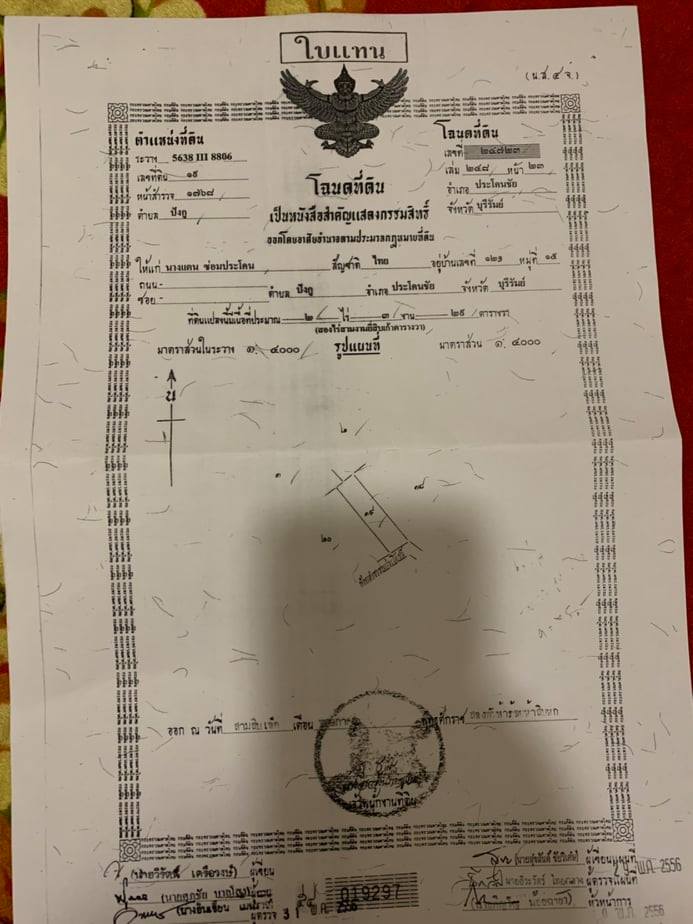 ใบแทน
(น.ส. ๔ จ.)
ตำแหน่งที่ดิน
ระวาง 5638 III 8806
เลขที่ดิน ๑๙
หน้าสำรวจ ๑๗๖๘
ตำบล ปังกู
โฉนดที่ดิน
เลขที่ ๒๔๗๒๓
เล่ม ๒๔๘ หน้า ๒๓
อำเภอ ประโคนชัย
จังหวัด บุรีรัมย์
โฉนดที่ดิน
เป็นหนังสือสำคัญแสดงกรรมสิทธิ์
ออกโดยอาศัยอำนาจตามประมวลกฎหมายที่ดิน
ให้แก่ นางแดน ซ่อมประโคน สัญชาติ ไทย อยู่บ้านเลขที่ ๑๒๑ หมู่ที่ ๑๕
ถนน -
ซอย - ตำบล ปังกู อำเภอ ประโคนชัย จังหวัด บุรีรัมย์
ที่ดินแปลงนี้มีเนื้อที่ประมาณ ๒ ไร่ ๓ งาน ๒๙ ตารางวา
(สองไร่สามงานยี่สิบเก้าตารางวา)
มาตราส่วนในระวาง ๑: ๔๐๐๐ รูปแผนที่ มาตราส่วน ๑: ๔๐๐๐
น
๒
๓
๑๘
๑๙
๒๐
ออก ณ วันที่ สามสิบเอ็ด เดือน พุทธศักราช สองพันห้าร้อยห้าสิบหก
เจ้าพนักงานที่ดิน
ผู้เขียน
ผู้เขียนแผนที่
ผู้ตรวจแผนที่
019297
ผู้ตรวจ 31 พ.ค. 2556
หัวหน้าการ
พ.ค. 2556